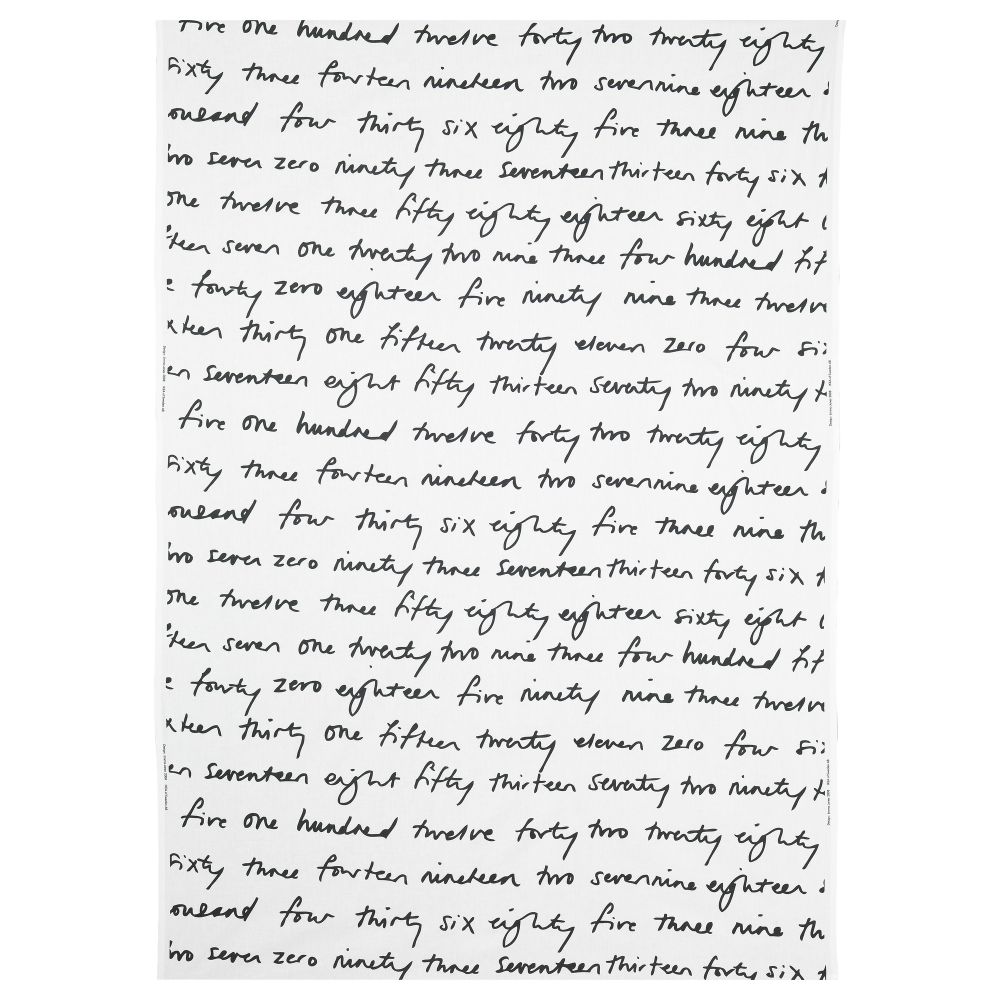 five one hundred twelve forty two twenty eighty
sixty three fourteen nineteen two seven nine eighteen
ousand four thirty six eighty five three nine th
two seven zero ninety three seventeen thirteen forty six t
one twelve three fifty eighty eighteen sixty eight
fteen seven one twenty two nine three four hundred fif
e fourty zero eighteen five ninety nine three twelve
xteen thirty one fifteen twenty eleven zero four six
en seventeen eight fifty thirteen seventy two ninety t
five one hundred twelve forty two twenty eighty
sixty three fourteen nineteen two seven nine eighteen
ousand four thirty six eighty five three nine th
two seven zero ninety three seventeen thirteen forty six t
one twelve three fifty eighty eighteen sixty eight
fteen seven one twenty two nine three four hundred fif
e fourty zero eighteen five ninety nine three twelve
xteen thirty one fifteen twenty eleven zero four six
en seventeen eight fifty thirteen seventy two ninety t
five one hundred twelve forty two twenty eighty
sixty three fourteen nineteen two seven nine eighteen
ousand four thirty six eighty five three nine th
two seven zero ninety three seventeen thirteen forty six t